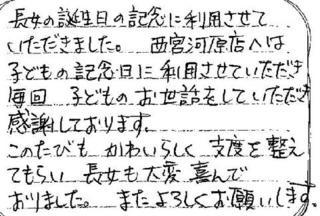 長女の誕生日の記念に利用させて
いただきました。 西宮河原店へは
子どもの記念日に利用させていただき
毎回 子どものお世話をしていただき
感謝しております。
このたびも かわいらしく 支度を整え
てもらい 長女も大変 喜んで
おりました。 またよろしくお願いします。